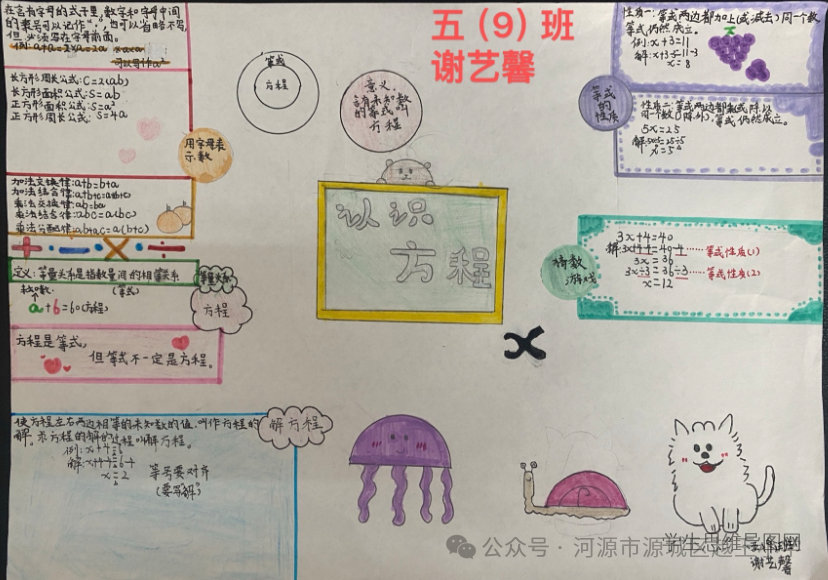 五（9）班
谢艺馨
在含有字母的式子里，数字和字母中间
的乘号可以记作“·”，也可以省略不写，
但必须写在字母前面。
例：a+a=2×a=2a
可以写作a²
长方形周长公式：C=2(ab)
长方形面积公式：S=ab
正方形面积公式：S=a²
正方形周长公式：S=4a
用字母表
示数
加法交换律：a+b=b+a
加法结合律：a+b+c=a+(b+c)
乘法交换律：ab=ba
乘法结合律：abc=a(bc)
乘法分配律：ab+ac=a(b+c)
+ · − × ÷
定义：等量关系是指数量间的相等关系
等量关系
未知数
(等式)
a+6=60(方程)
方程
方程是等式，
但等式不一定是方程。
使方程左右两边相等的未知数的值，叫作方程的
解。求方程的解的过程叫解方程。
例：x+4=6
解：x+4-4=6-4
x=2
等号要对齐
(要写“解”)
解方程
等式
方程
意义：
含有未知数
的等式叫
方程
认识
方程
x
等式
的
性质
性质一：等式两边都加上(或减去)同一个数，
等式仍然成立。
例：x+3=11
解：x+3-3=11-3
x=8
性质二：等式两边都乘或除以
同一个数(0除外)，等式仍然成立。
5x=25
解：5x÷5=25÷5
x=5
猜数
游戏
3x+4=40
解：3x+4-4=40-4……等式性质(1)
3x=36
3x÷3=36÷3……等式性质(2)
x=12
学生思维导图网
谢艺馨
公众号·河源市源城区